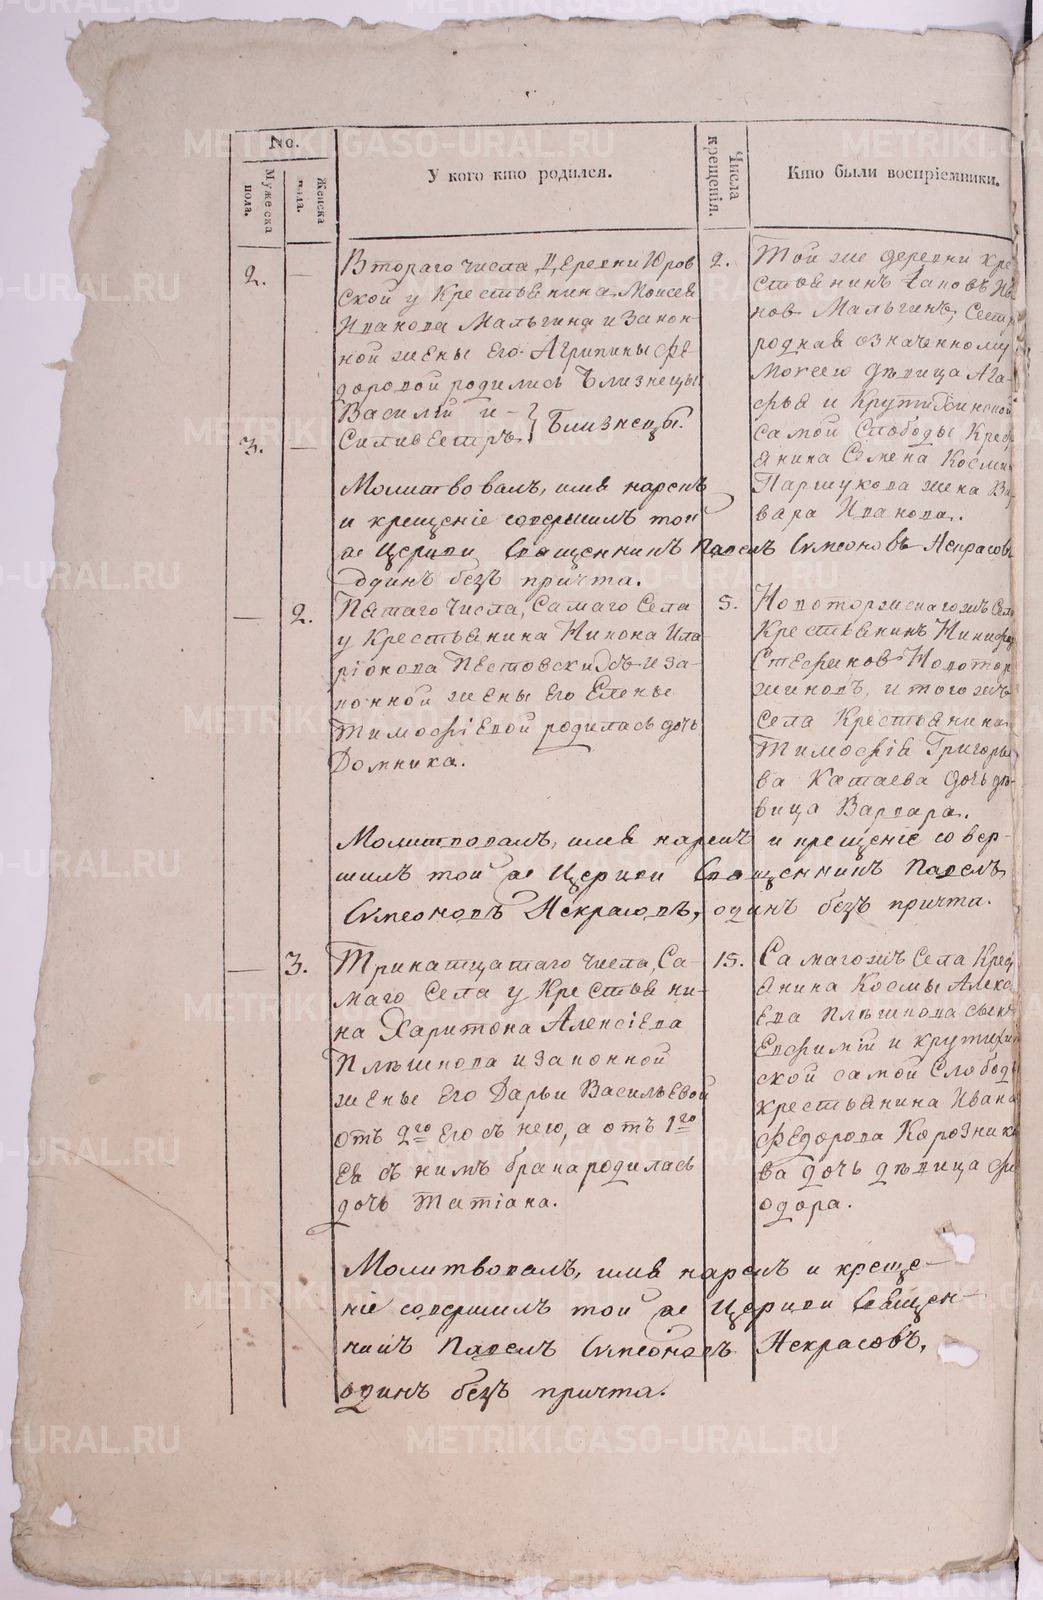 No.
Мужеска пола.
Женска пола.
У кого кто родился.
Числа крещенія.
Кто были воспріемники.
2.
—
Втораго числа, Деревни Юров
ской у Крестьянина Моисея
Иванова Мальгина и закон
ной жены его Агрипины Фе-
доровой родились близнецы
Василій и -
Силивестръ } Близнецы.
3.
—
2.
Той же деревни кре
стьянинъ Иаковъ Ив
нов Мальгинъ, Сест
родная означенному
Моисею дѣвица Ага-
фья и Крутихинской
самой Слободы Крест
янина Семена Косми
Паршукова жена Ва
вара Иванова.
Молитвовалъ, имя нарекъ
и крещеніе совершилъ той
же Церкви Священникъ Павелъ Симеоновъ Некрасовъ
одинъ безъ причта.
—
2.
Пятаго числа, Самаго Села
у Крестьянина Никона Ила-
ріонова Пестовскихъ и за-
конной жены его Елены
Тимофіевой родилась дочь
Домника.
5.
Новоторжскагожъ Села
Крестьянинъ Никифор
Стефанов Новотор
жиновъ, и тогожъ
Села Крестьянина
Тимофія Григорье
ва Катаева дочь дѣ-
вица Варвара.
Молитвовалъ, имя нарекъ и крещеніе совер-
шилъ той же Церкви Священникъ Павелъ
Симеоновъ Некрасовъ, одинъ безъ причта.
—
3.
Тринатцатаго числа, Са-
маго Села у Крестьяни-
на Харитона Алексіева
Плѣшкова и законной
жены его Дарьи Васильевой
отъ 2го его съ нею, а отъ 1го
ея съ нимъ брака родилась
дочь Татіана.
15.
Самагожъ Села Крест
янина Космы Алекс
ева Плѣшкова сынъ
Евфимій и крутихин
ской самой Слободы
крестьянина Ивана
Федорова Корзник
ва дочь дѣвица Фи
одора.
Молитвовалъ, имя нарекъ и креще-
ніе совершилъ той же Церкви Священ-
никъ Павелъ Симеоновъ Некрасовъ,
одинъ безъ причта.
METRIKI.GASO-URAL.RU